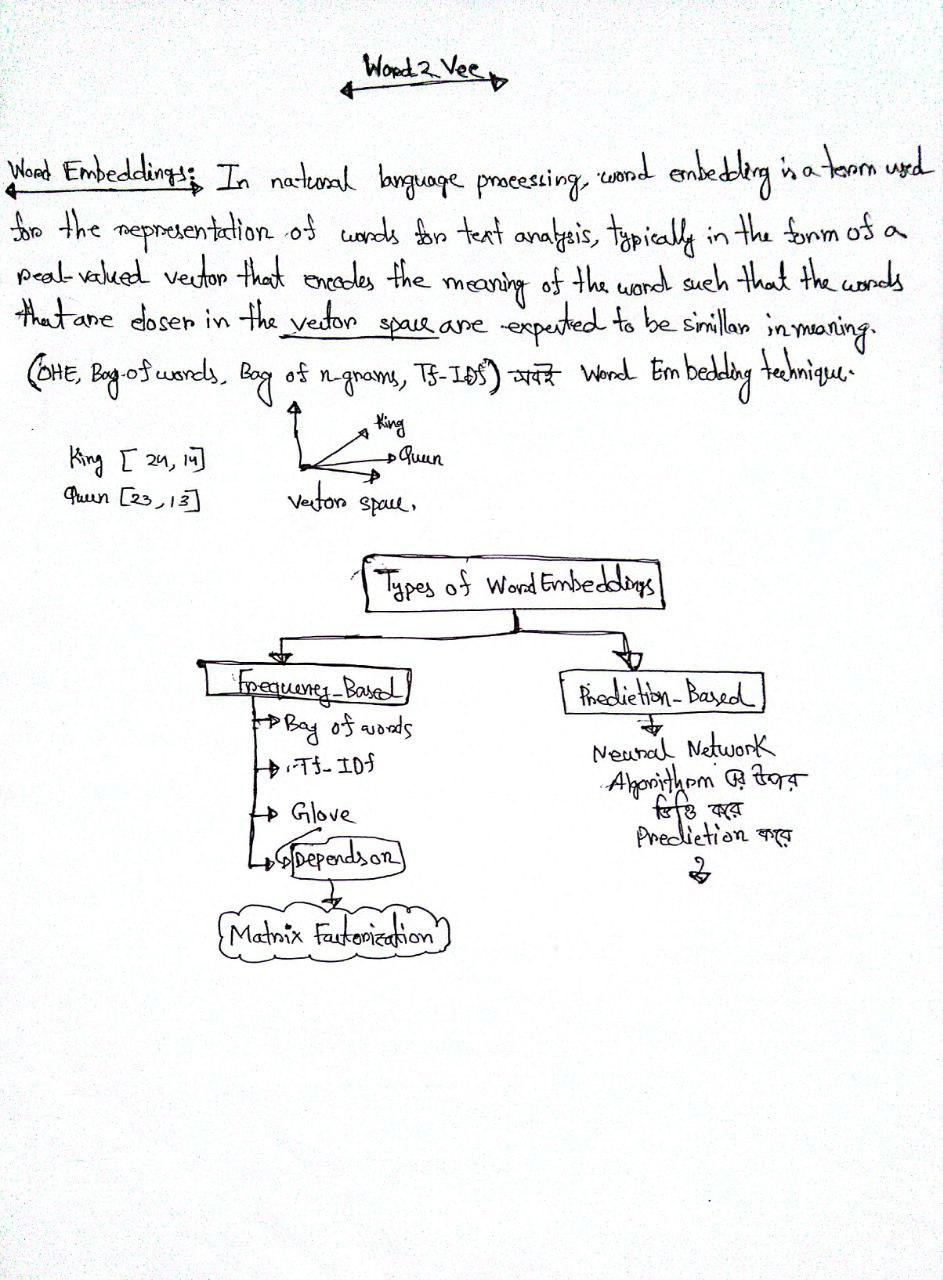 Word2Vec
Word Embeddings: In natural language processing, word embedding is a term used
for the representation of words for text analysis, typically in the form of a
real-valued vector that encodes the meaning of the word such that the words
that are closer in the vector space are expected to be simillar in meaning.
(OHE, Bag-of words, Bag of n-grams, Tf-IDf) সবই Word Embedding technique.
King [24, 14]
Queen [23, 13]
King
Queen
Vector space.
Types of Word Embeddings
Frequency-Based
Bag of words
Tf-IDf
Glove
Depends on
Matrix Factorization
Prediction-Based
Neural Network
Algorithm এর উপর
ভিত্তি করে
Prediction করে